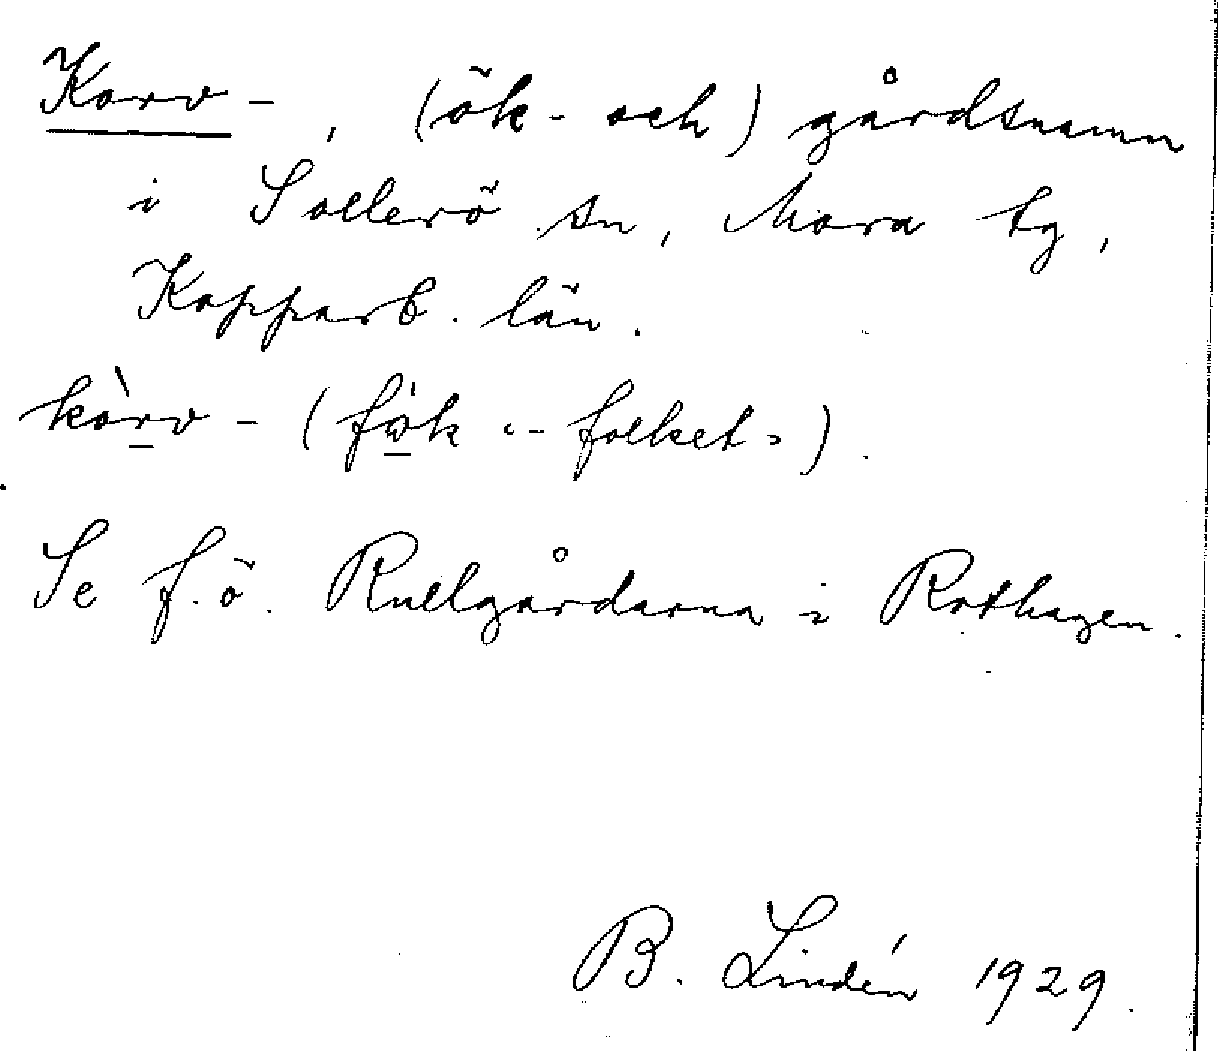 Korv-, (ök- och) gårdsnamn
i Sollerö sn, Mora tg,
Kopparb. län.
kòrv- (fὼk "-folket").
Se f.ö. Rullgårdarna i Rothagen.
B. Lindén 1929.